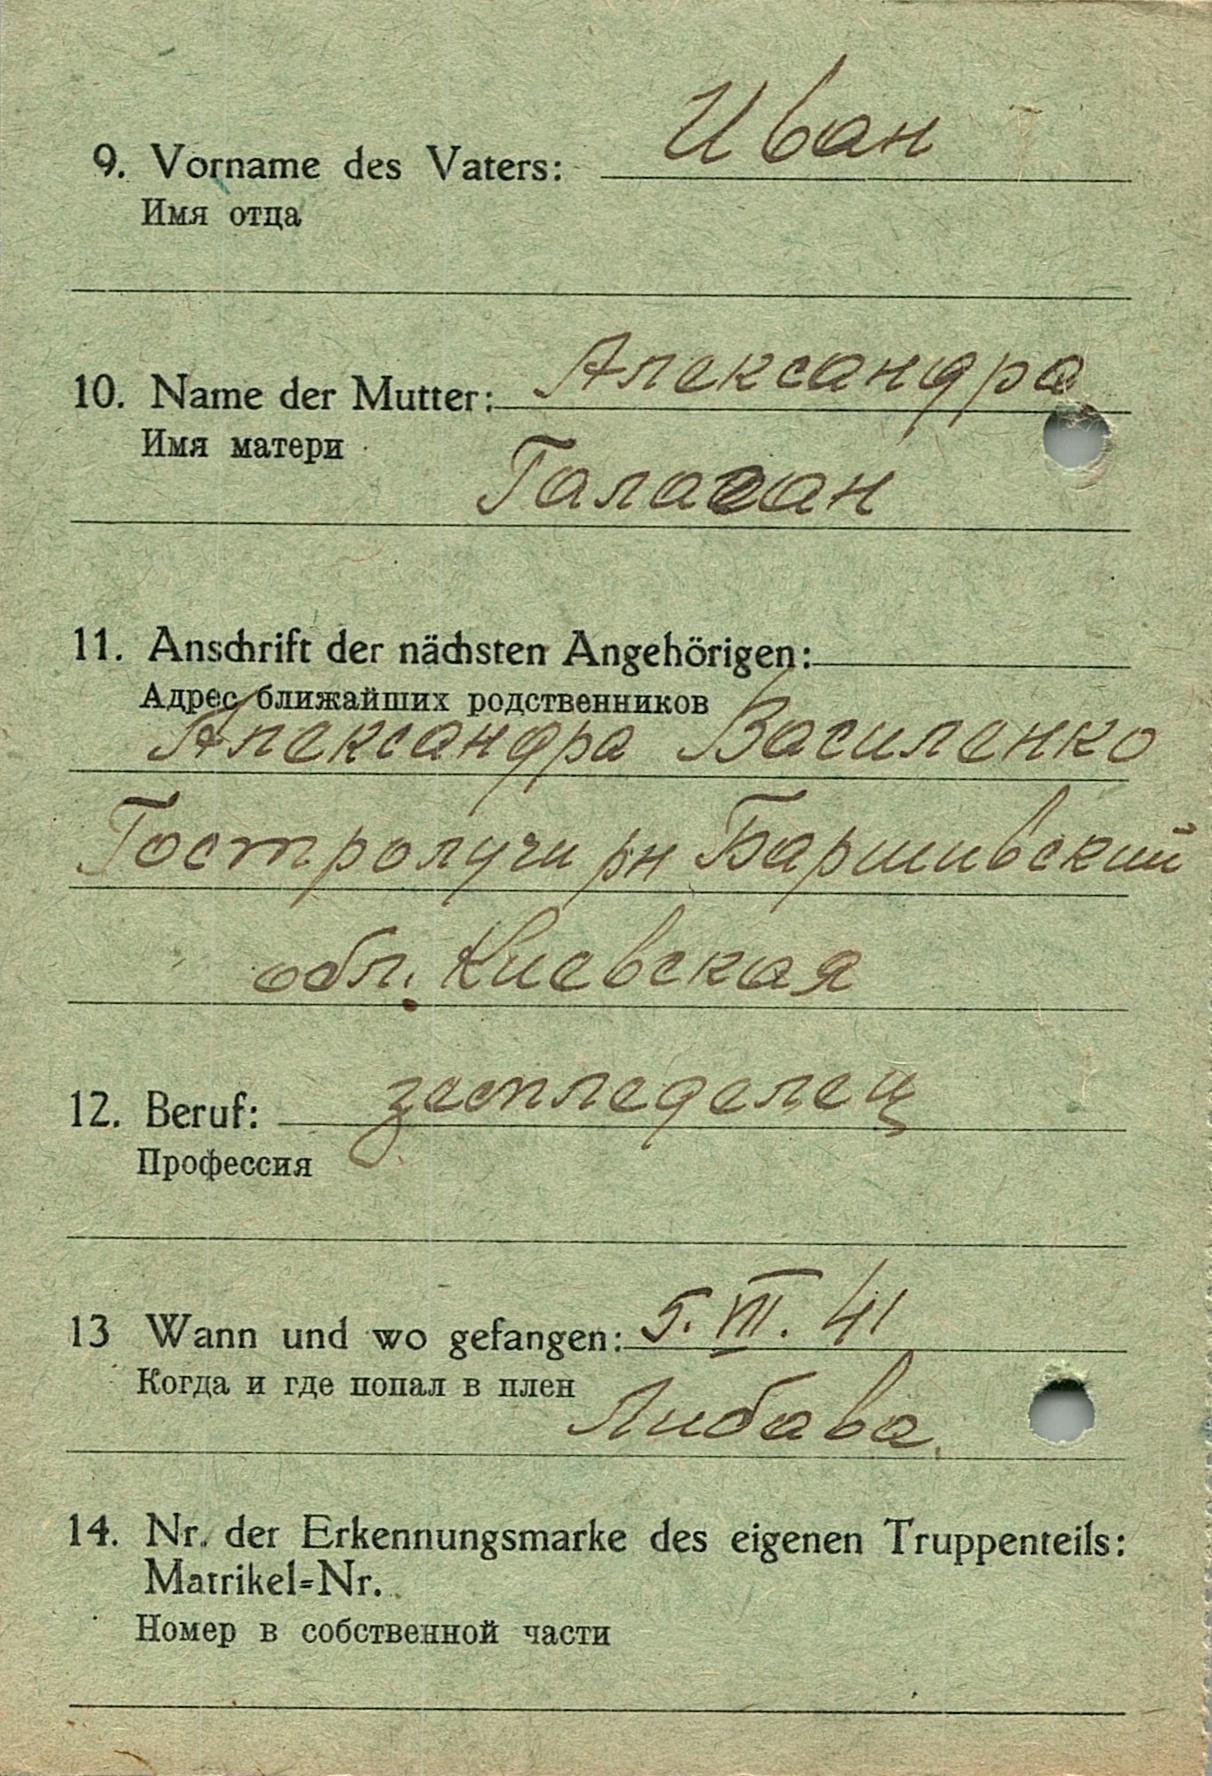 9. Vorname des Vaters: Иван
Имя отца
10. Name der Mutter: Александра
Имя матери
Галаган
11. Anschrift der nächsten Angehörigen:
Адрес ближайших родственников
Александра Василенко
Гостролучи рн Баришивский
обл. Киевская
12. Beruf: земледелец
Профессия
13 Wann und wo gefangen: 5. VII. 41
Когда и где попал в плен
Либава.
14. Nr. der Erkennungsmarke des eigenen Truppenteils:
Matrikel=Nr.
Номер в собственной части